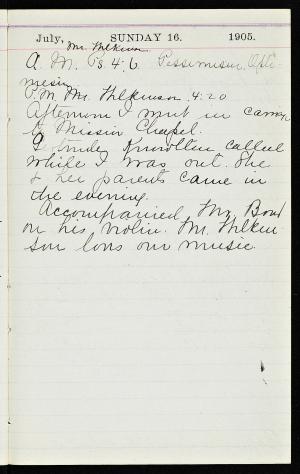 July, SUNDAY 16. 1905.
Mr. Wilkinson
A. M. Ps 4:6 Pessimism Opti-
mism
P. M. Mr. Wilkinson 4:20
Afternoon I went in
to Mission Chapel.
Knowlton called
while I was out. She
& her parents came in
the evening.
Accompanied Mr Bond
on his violin. Mr. Wilkin-
son our music.